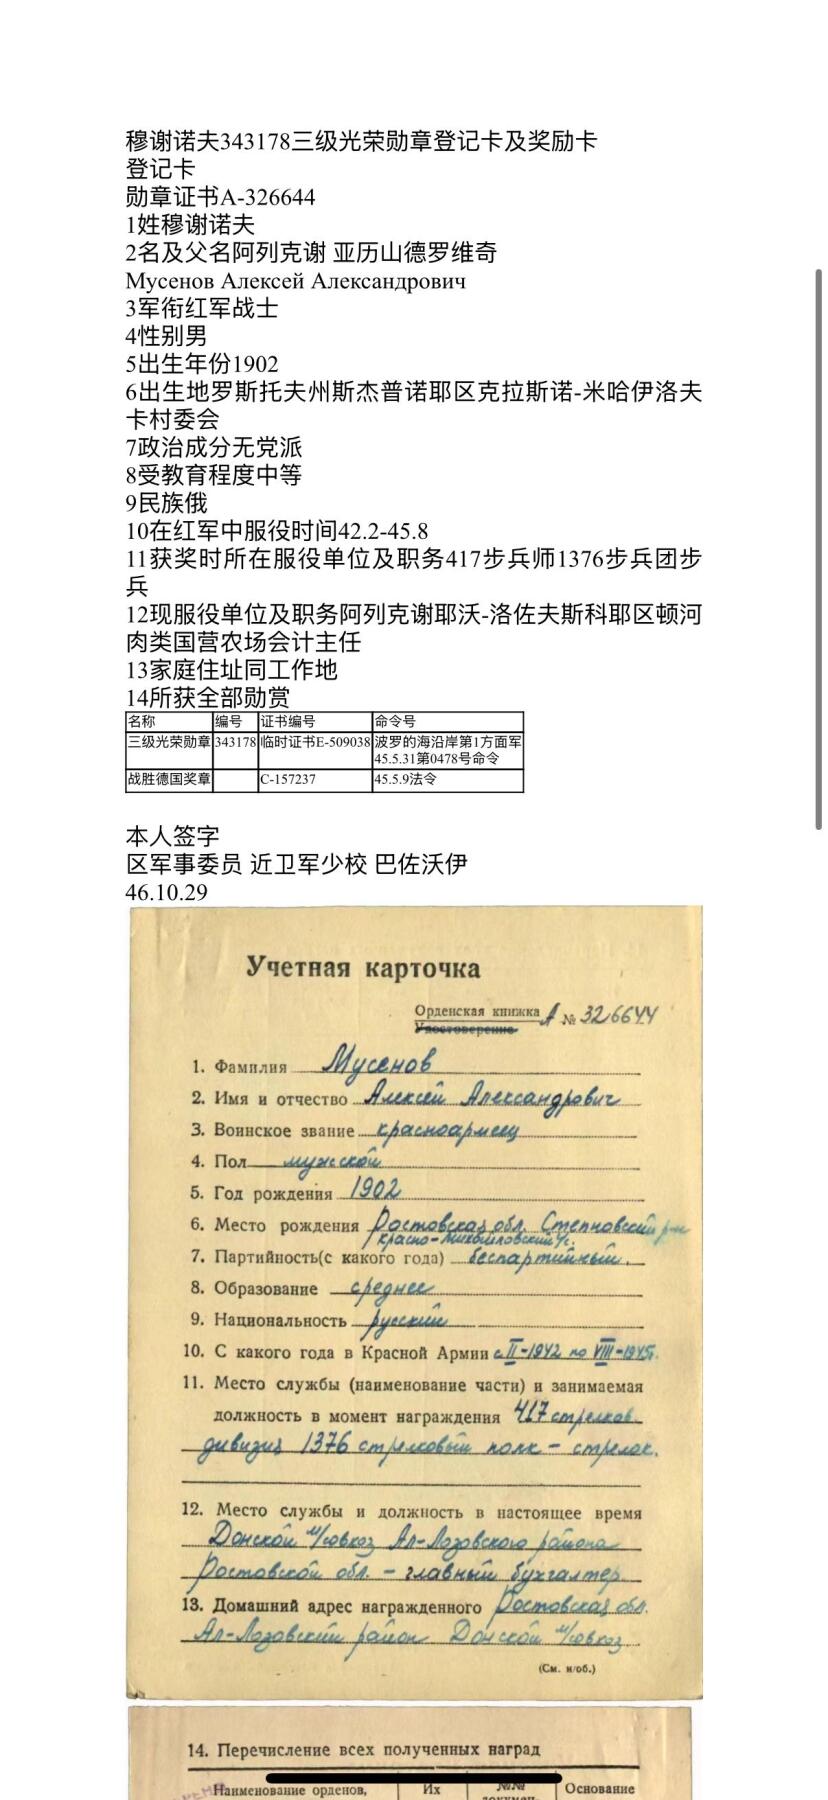 穆谢诺夫343178三级光荣勋章登记卡及奖励卡
登记卡
勋章证书A-326644
1姓穆谢诺夫
2名及父名阿列克谢 亚历山德罗维奇
Мусенов Алексей Александрович
3军衔红军战士
4性别男
5出生年份1902
6出生地罗斯托夫州斯杰普诺耶区克拉斯诺-米哈伊洛夫
卡村委会
7政治成分无党派
8受教育程度中等
9民族俄
10在红军中服役时间42.2-45.8
11获奖时所在服役单位及职务417步兵师1376步兵团步
兵
12现服役单位及职务阿列克谢耶沃-洛佐夫斯科耶区顿河
肉类国营农场会计主任
13家庭住址同工作地
14所获全部勋赏
名称 编号 证书编号 命令号
三级光荣勋章 343178 临时证书E-509038 波罗的海沿岸第1方面军
45.5.31第0478号命令
战胜德国奖章 C-157237 45.5.9法令
本人签字
区军事委员 近卫军少校 巴佐沃伊
46.10.29
Учетная карточка
Орденская книжка А № 326644
Удостоверение
1. Фамилия Мусенов
2. Имя и отчество Алексей Александрович
3. Воинское звание красноармеец
4. Пол мужской
5. Год рождения 1902
6. Место рождения Ростовская обл. Степновский р-н
красно-Михайловский с/с.
7. Партийность(с какого года) беспартийный.
8. Образование среднее
9. Национальность русский
10. С какого года в Красной Армии с II-1942 по VIII-1945г.
11. Место службы (наименование части) и занимаемая
должность в момент награждения 417 стрелков.
дивизия 1376 стрелковый полк - стрелок.
12. Место службы и должность в настоящее время
Донской м/совхоз Ал-Лозовского района
Ростовской обл. - главный бухгалтер
13. Домашний адрес награжденного Ростовская обл.
Ал-Лозовский район Донской м/совхоз
(См. н/об.)
14. Перечисление всех полученных наград
Наименование орденов, Их №№ Основание
докумен-